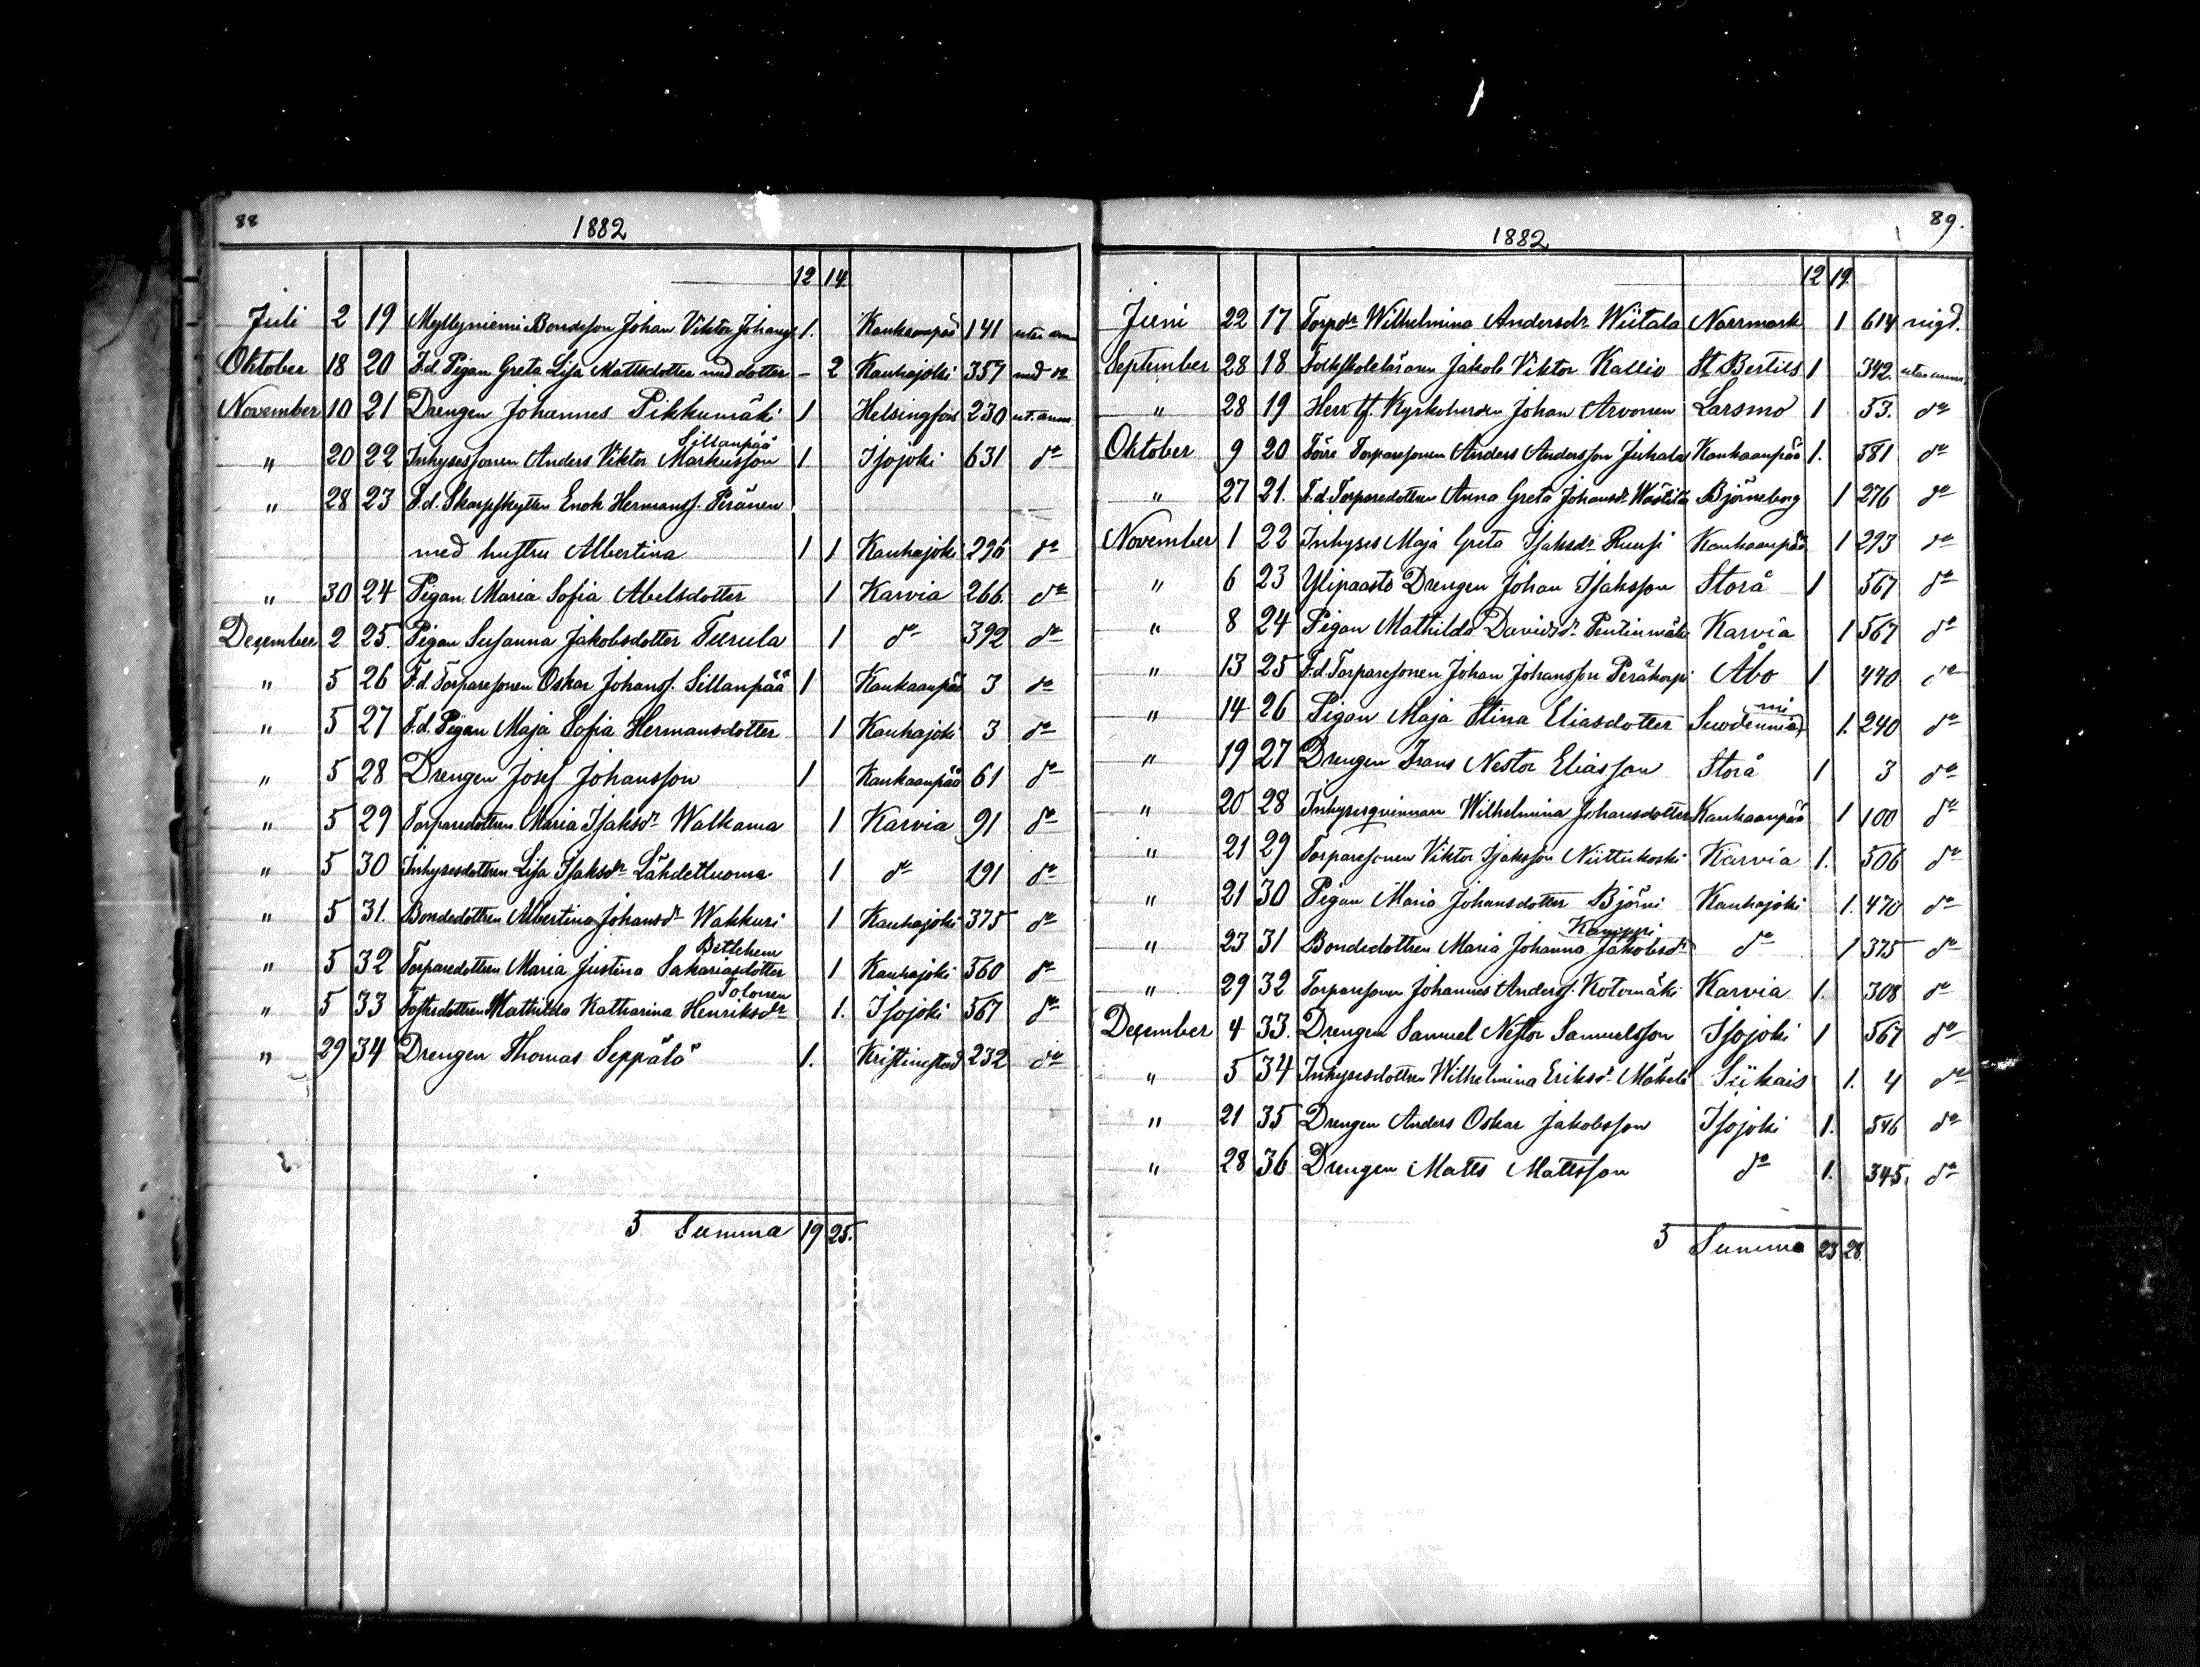 88
1882
12 14
Juli 2 19 Myllyniemi Bondeson Johan Viktor Johans 1. Kankaanpää 141 utan anm
Oktober 18 20 F.d. Pigan Greta Lisa Mattsdotter med dotter - 2 Kauhajoki 357 med
November 10 21 Drengen Johannes Pikkumäki 1 Helsingfors 230 ut. anm.
Sillanpää
" 20 22 Inhysessonen Anders Viktor Markusson 1 Isojoki 631 do
" 28 23 F.d. Skarpskytten Enok Hermanss. Peränen
med hustru Albertina 1 1 Kauhajoki 296 do
" 30 24 Pigan Maria Sofia Abelsdotter 1 Karvia 266 do
December 2 25. Pigan Susanna Jakobsdotter Turula 1 do 392 do
" 5 26 F.d. Torparesonen Oskar Johanss. Sillanpää 1 Kankaanpää 3 do
" 5 27 F.d. Pigan Maja Sofia Hermansdotter 1 Kauhajoki 3 do
" 5 28 Drengen Josef Johansson 1 Kankaanpää 61 do
" 5 29 Torparedottren Maria Isaksdr Walkama 1 Karvia 91 do
" 5 30 Inhysesdottren Lisa Isaksdr Lähdetluoma 1 do 191 do
" 5 31. Bondedottren Albertina Johansdr Wakkuri 1 Kauhajoki 375 do
Betlehem
" 5 32 Torparedottren Maria Justina Sakariasdotter 1 Kauhajoki 560 do
Tolonen
" 5 33 Mathilda Katharina Henriksdr 1. Isojoki 567 do
" 29 34 Drengen Thomas Seppälä 1. Kristinestad 232 do
5 Summa 19 25.
89.
1882
12 19
Juni 22 17 Torpdr Wilhelmina Andersdr Wiitala Norrmark 1 614 nigd.
September 28 18 Folkskoleläraren Jakob Viktor Kallio St Bertils 1 342. utan anm.
" 28 19 Herr tf. Kyrkoherden Johan Arvonen Larsmo 1 53. do
Oktober 9 20 Förre Torparesonen Anders Andersson Juhala Kankaanpää 1. 581 do
" 27 21. F.d. Torparedottren Anna Greta Johansdr Wästilä Björneborg 1 276 do
November 1 22 Inhyses Maja Greta Isaksdr Ruusi Kankaanpää 1 293 do
" 6 23 Ylipaasto Drengen Johan Isaksson Storå 1 567 do
" 8 24 Pigan Mathilda Davidsdr Pentinmäki Karvia 1 567 do
" 13 25 F.d. Torparesonen Johan Johansson Peräkorpi Åbo 1 440 do
mi
" 14 26 Pigan Maja Stina Eliasdotter Suodenniemi 1. 240 do
" 19 27 Drengen Frans Nestor Eliasson Storå 1 3 do
" 20 28 Inhysesqvinnan Wilhelmina Johansdotter Kankaanpää 1 100 do
" 21 29 Torparesonen Viktor Isaksson Niittukoski Karvia 1. 506 do
" 21 30 Pigan Maria Johansdotter Björni Kauhajoki 1. 470 do
Kamppi
" 23 31 Bondedottren Maria Johanna Jakobsdr do 1 375 do
" 29 32 Torparesonen Johannes Anderss. Kotomäki Karvia 1. 308 do
December 4 33. Drengen Samuel Nestor Samuelsson Isojoki 1 567 do
" 5 34 Inhysesdottren Wilhelmina Eriksdr Mäkelä Siikais 1. 4 do
" 21 35 Drengen Anders Oskar Jakobsson Isojoki 1. 546 do
" 28 36 Drengen Matts Mattsson do 1. 345. do
5 Summa 23 28